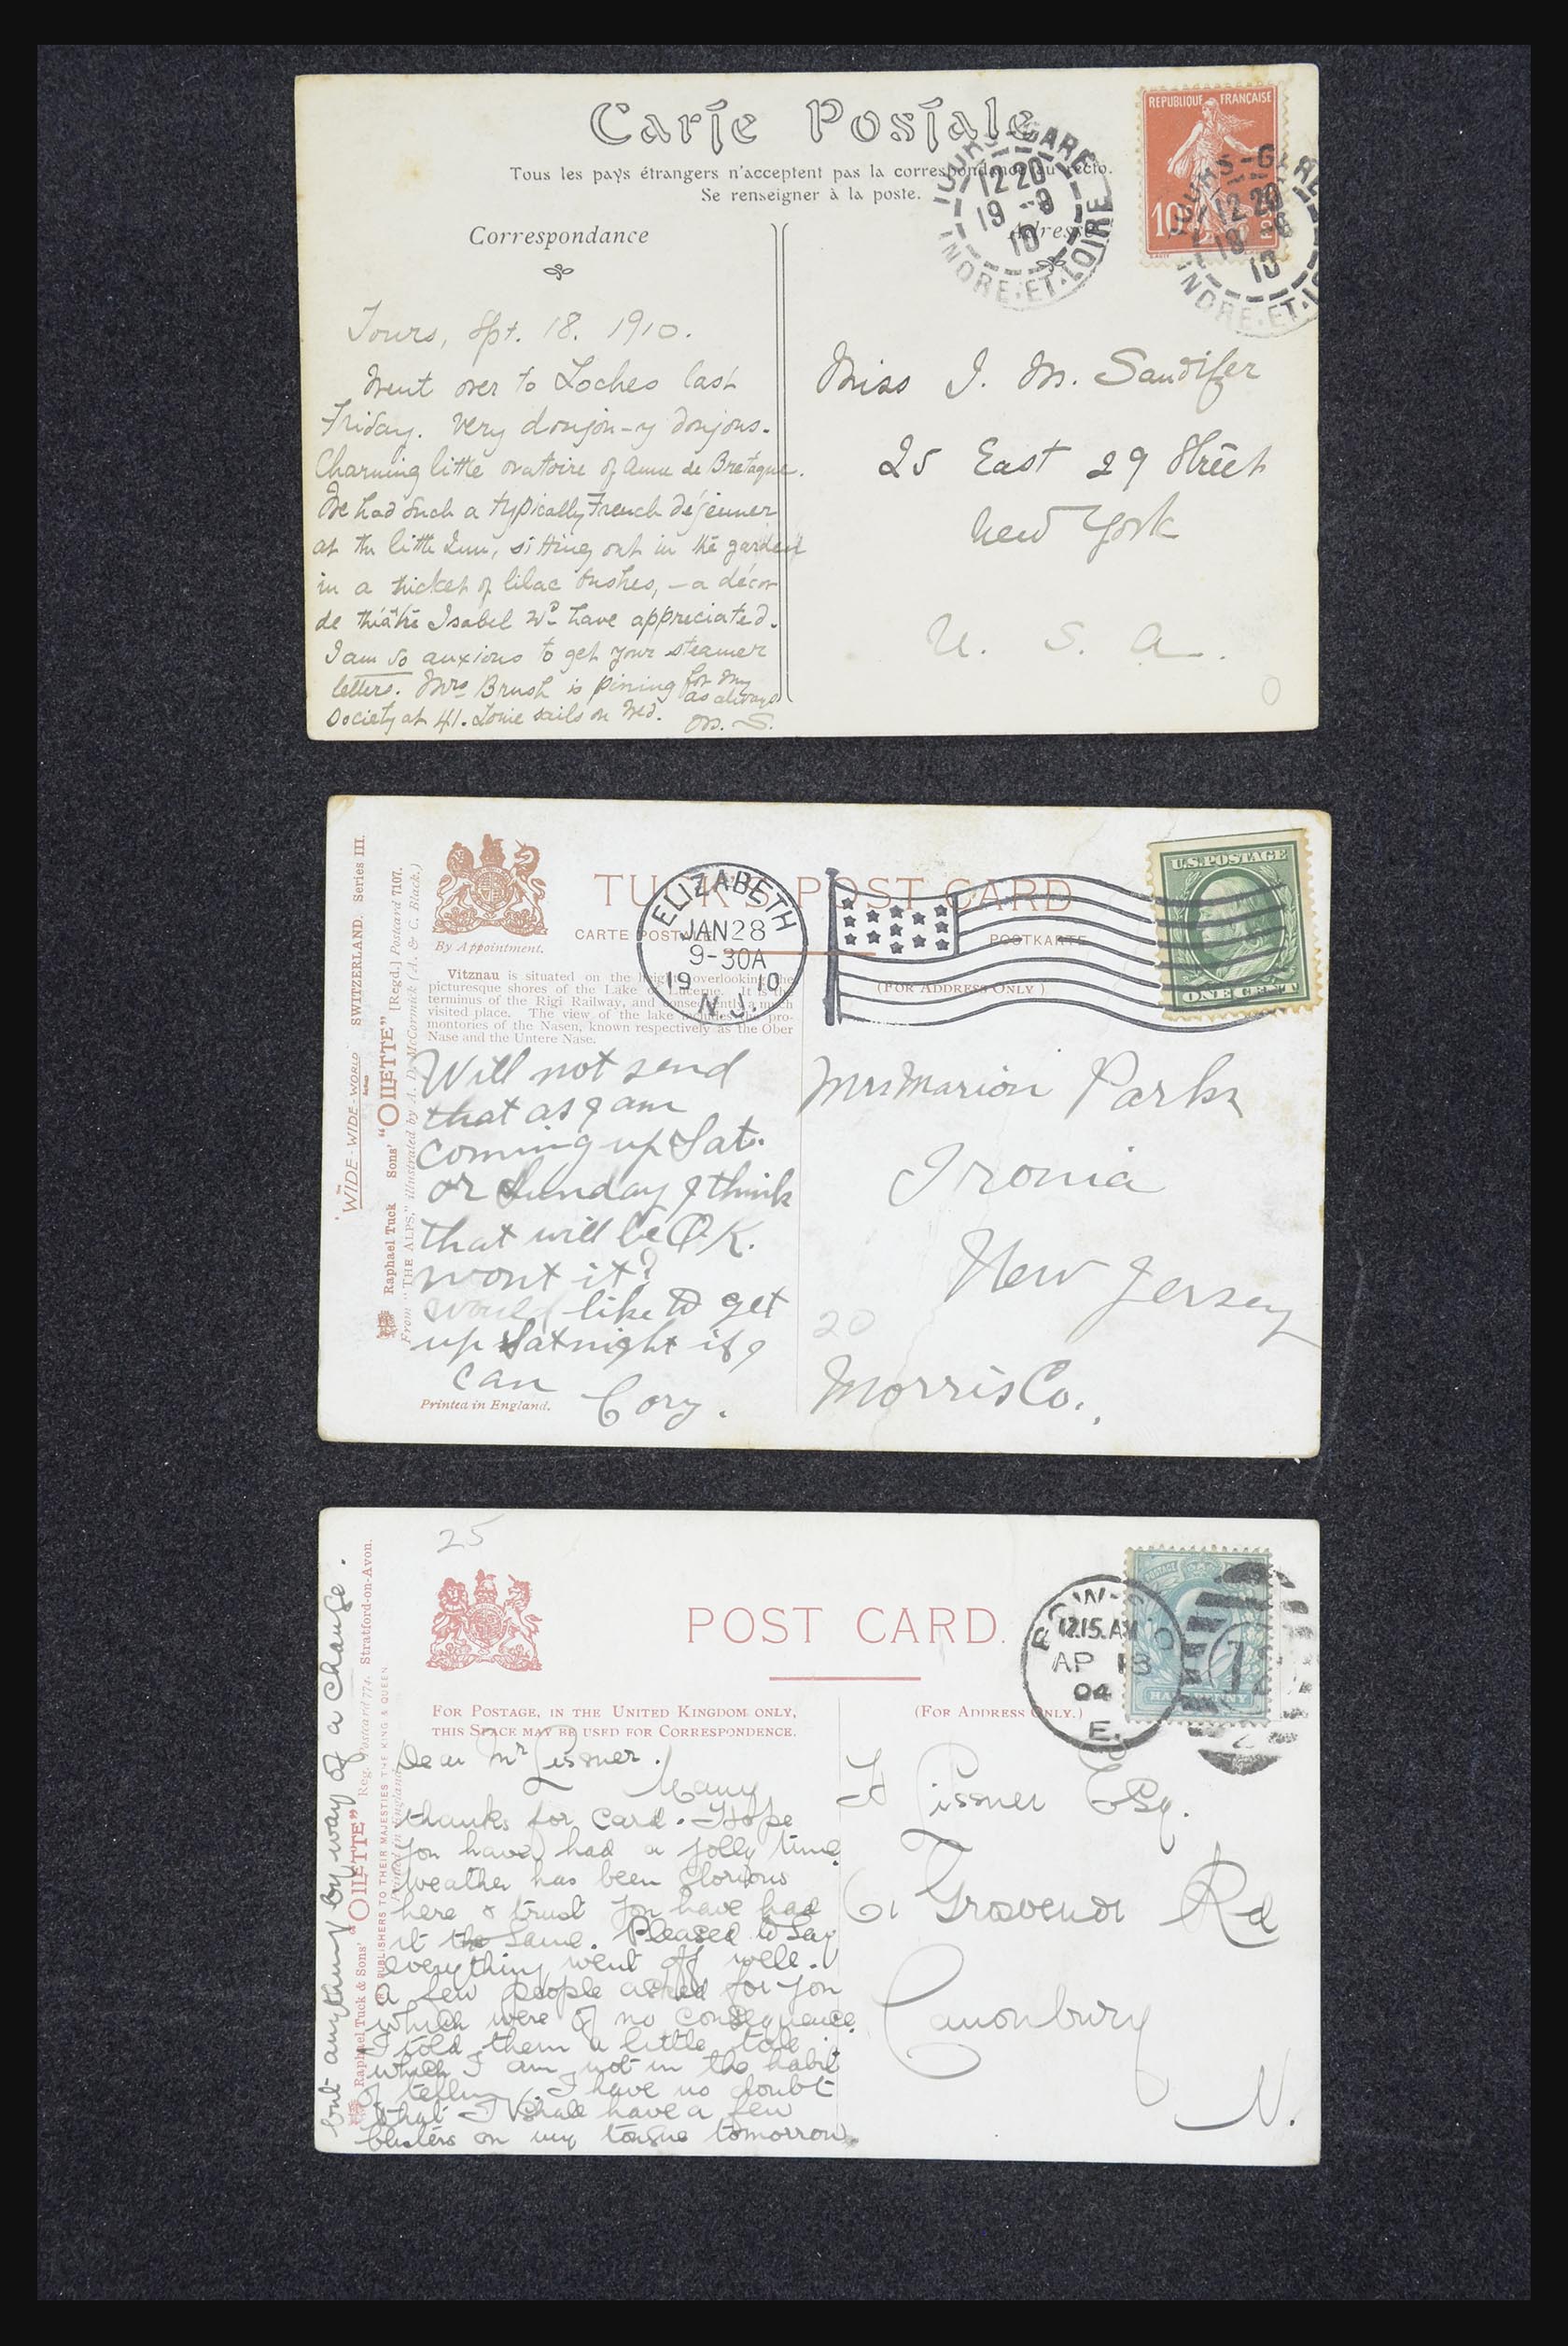 Carte Postale
Tous les pays étrangers n'acceptent pas la correspondance au recto.
Se renseigner à la poste.
Correspondance
Adresse
REPUBLIQUE FRANÇAISE
10
TOURS-GARE
12 20
19 -9
10
INDRE-ET-LOIRE
TOURS-GARE
12 20
10
INDRE-ET-LO
Tours, Spt. 18. 1910.
Went over to Loches last
Friday. Very donjon-y donjons.
Charming little oratoire of Anne de Bretagne.
We had such a typically French déjeuner
at the little Inn, sitting out in the garden
in a thicket of lilac bushes, — a décor
de théâtre Isabel wd have appreciated.
I am so anxious to get your steamer
letters. Mrs Brush is pining for my
society at 41. Louie sails on Wed.
as always
M. S.
Miss J. M. Sandifer
25 East 29 Street
New York
U. S. A.
0
"WIDE-WIDE-WORLD SWITZERLAND. Series III.
Raphael Tuck Sons' "OILETTE" [Regd.] Postcard 7107.
From "THE ALPS," illustrated by A. D. McCormick (A. & C. Black.)
By Appointment.
TUCK'S POST CARD
CARTE POSTALE
POSTKARTE
(FOR ADDRESS ONLY)
Vitznau is situated on the heights overlooking the
picturesque shores of the Lake of Lucerne. It is the
terminus of the Rigi Railway, and consequently a much
visited place. The view of the lake includes the pro-
montories of the Nasen, known respectively as the Ober
Nase and the Untere Nase.
ELIZABETH
JAN 28
9-30A
19 10
N.J.
U.S. POSTAGE
ONE CENT
Will not send
that as I am
coming up Sat.
or Sunday I think
that will be O.K.
wont it?
would like to get
up Sat night if I
can
Cory.
Printed in England.
Mrs Marion Parks
Ironia
New Jersey
20
Morris Co.,
25
Raphael Tuck & Sons' "OILETTE" Reg. Postcard 774. Stratford-on-Avon.
PUBLISHERS TO THEIR MAJESTIES THE KING & QUEEN
Printed in England
POST CARD.
FOR POSTAGE, IN THE UNITED KINGDOM ONLY,
THIS SPACE MAY BE USED FOR CORRESPONDENCE.
(FOR ADDRESS ONLY.)
POSTAGE
HALFPENNY
12.15.AM
AP 18
04
E.
Dear Mr Lissner.
Many
thanks for card. Hope
you have had a jolly time
weather has been glorious
here & trust you have had
it the same. Pleased to say
everything went off well.
a few people asked for you
which were of no consequence
I told them a little tale
which I am not in the habit
of telling. I have no doubt
that I shall have a few
blisters on my tongue tomorrow
but anything by way of a change.
Lissner Esq.
61 Grosvenor Rd
Canonbury
N.